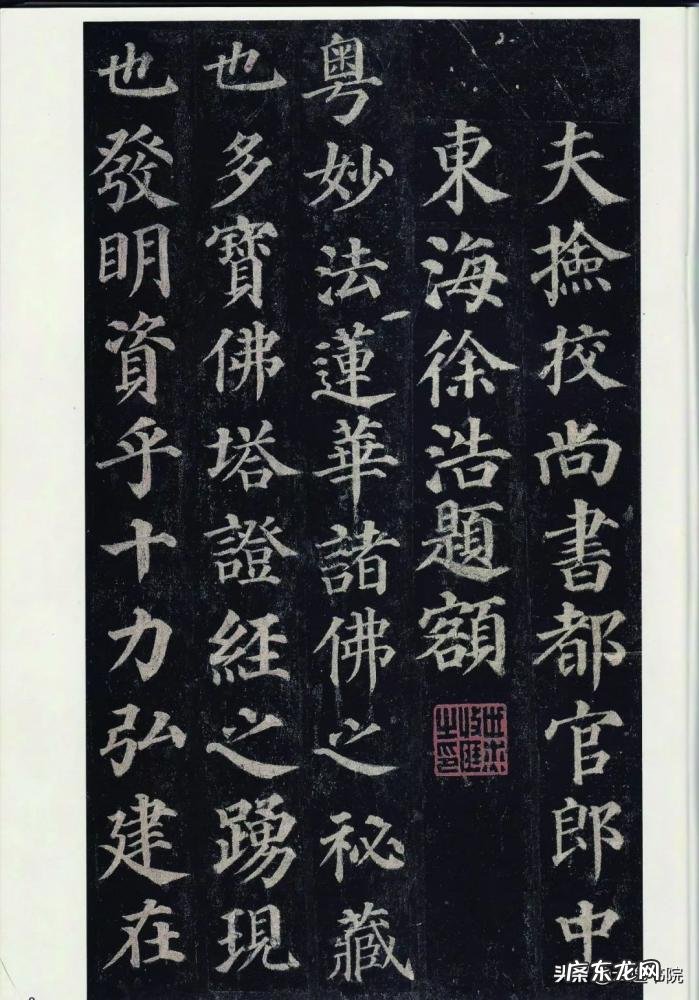 夫撿挍尚書都官郎中
東海徐浩題額
粤妙法蓮華諸佛之秘藏
也多寶佛塔證經之踴現
也發明資乎十力弘建在